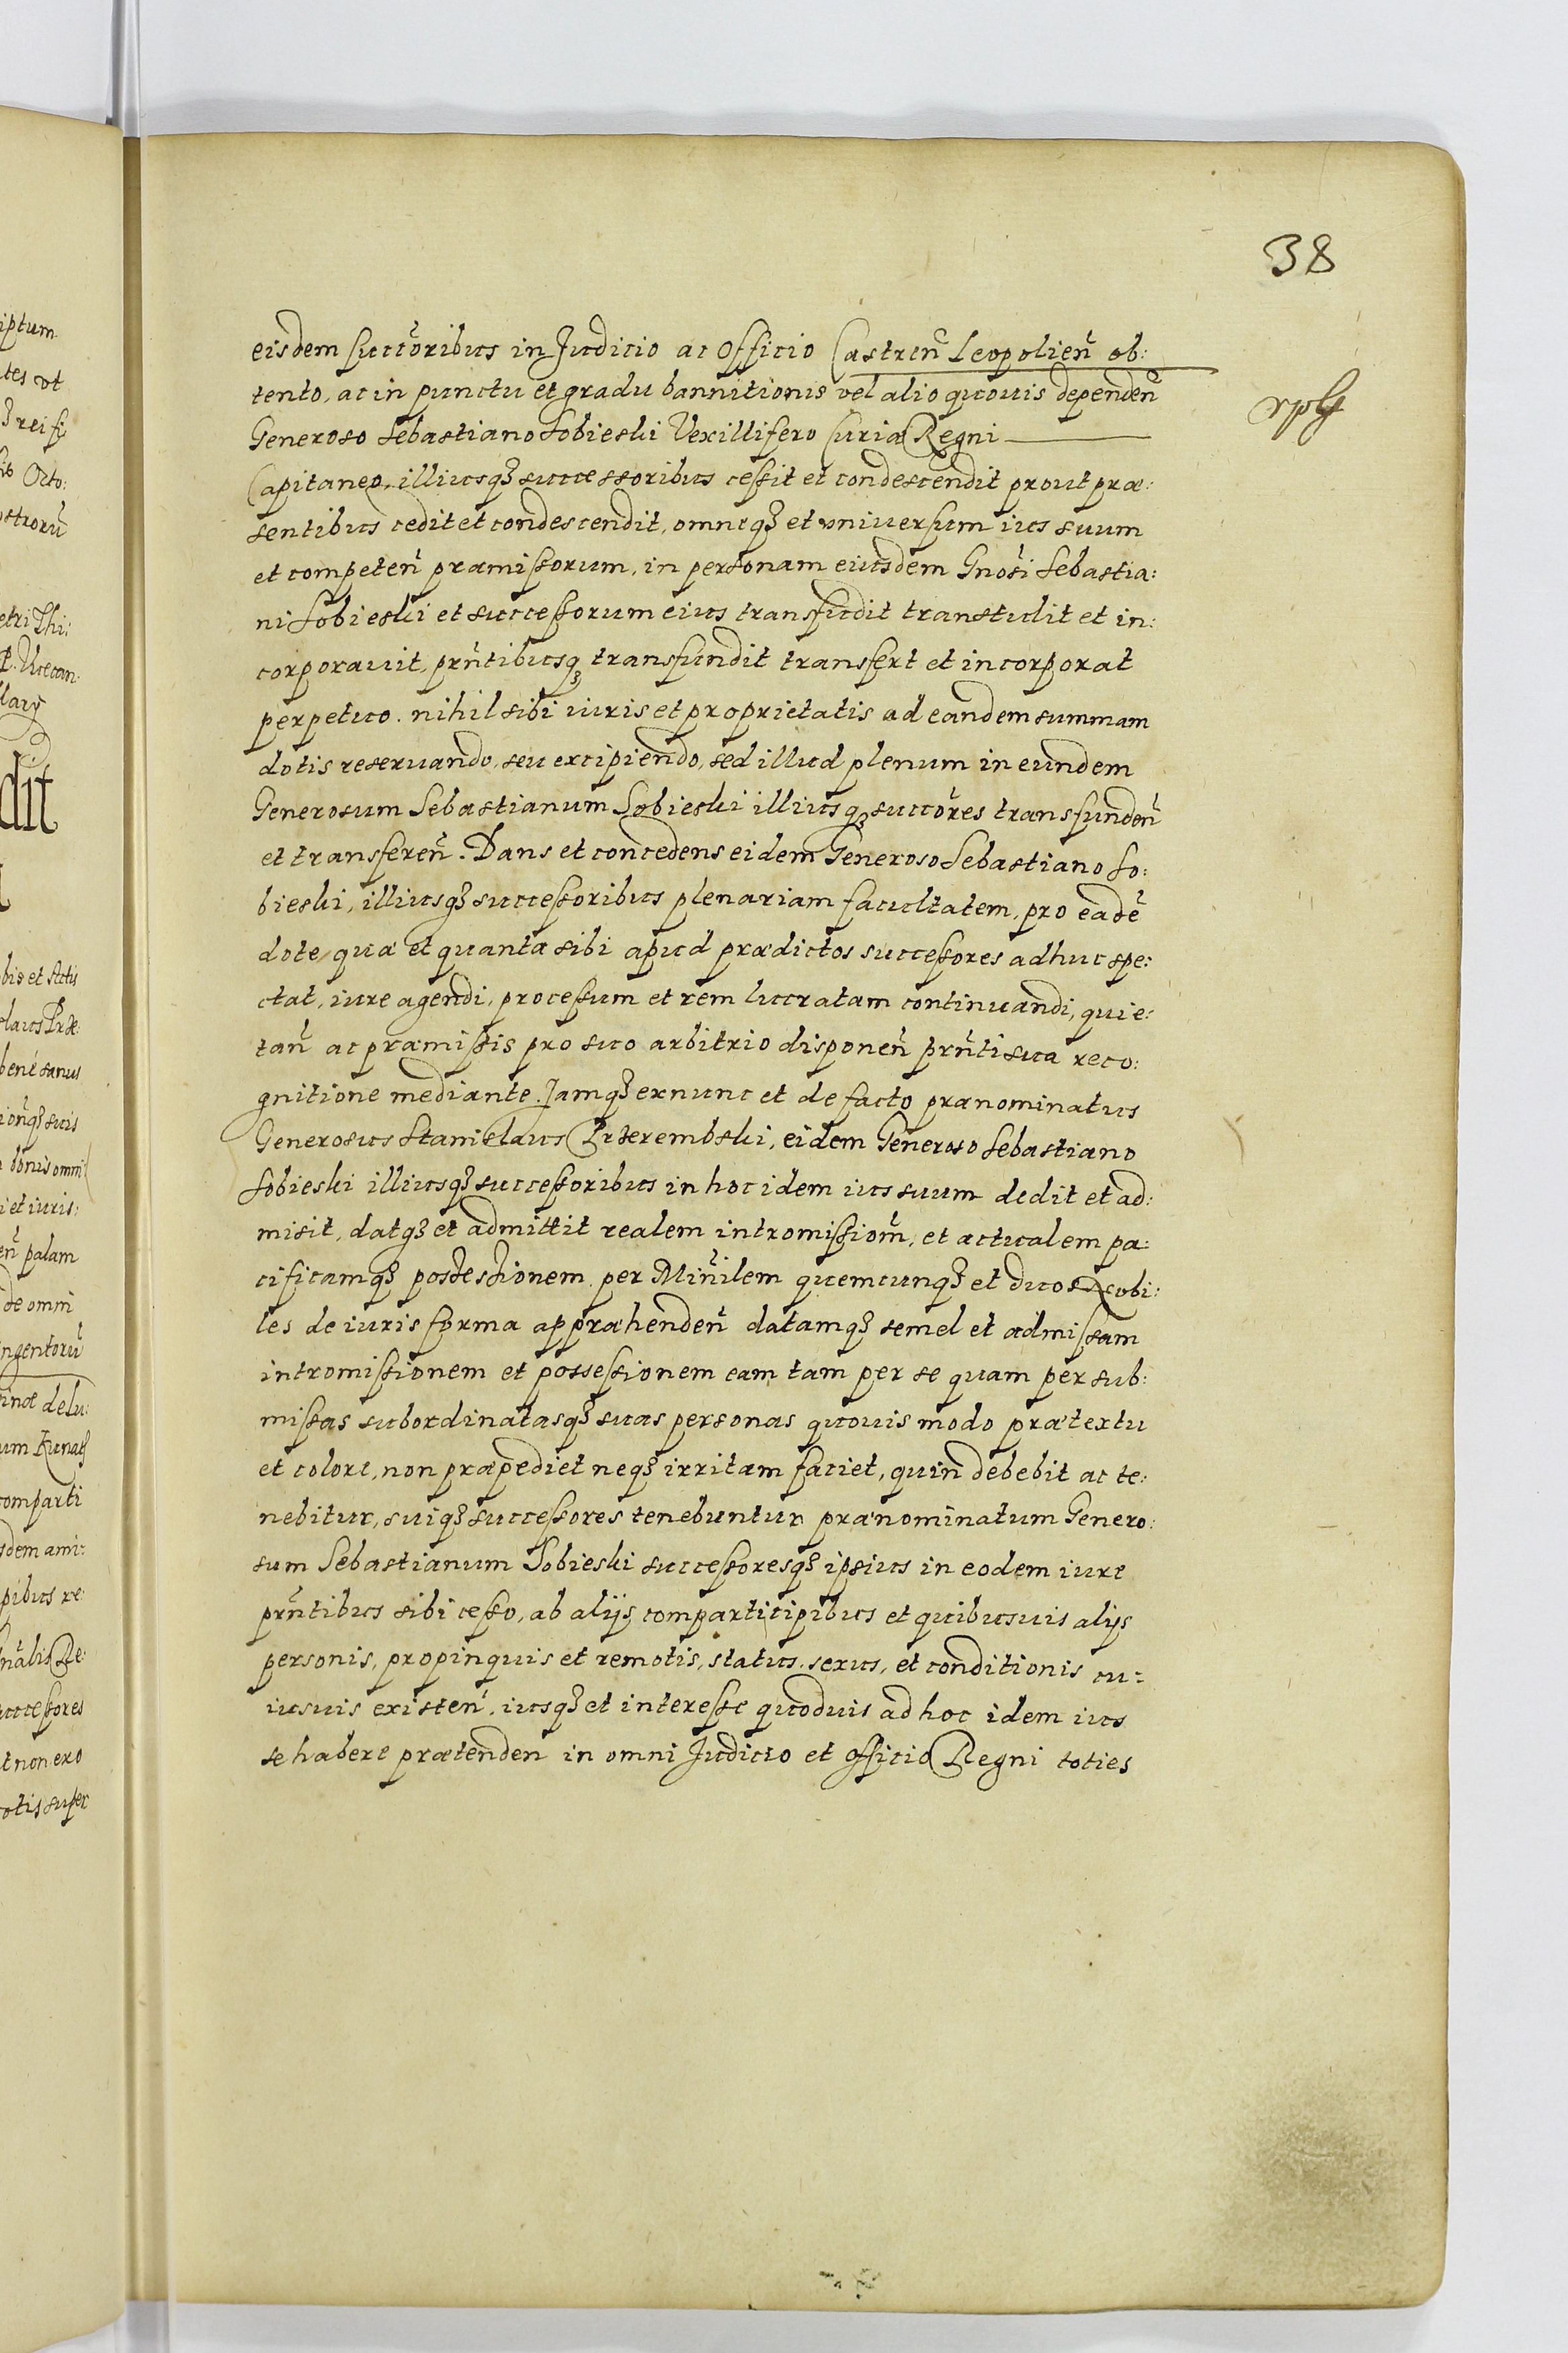 38
eisdem succ̃oribus in Judicio ac Officio Castreñ Leopolieñ ob:
tento, ac in punctu et gradu bannitionis vel alio quouis dependeñ
Generoso Sebastiano Sobieski Vexillifero Curiæ Regni
Capitaneo, illiusqȝ successoribus cessit et condescendit prout præ:
sentibus cedit et condescendit, omneqȝ et vniuersum ius suum
et competeñ præmissorum, in personam eiusdem Gnõsi Sebastia:
ni Sobieski et successorum eius transfudit transtulit et in:
corporauit, prñtibusqȝ transfundit transfert et incorporat
perpetuo. nihil sibi iuris et proprietatis ad eandem summam
dotis reseruando, seu excipiendo, sed illud plenum in eundem
Generosum Sebastianum Sobieski illiusqȝ succõres transfundeñ
et transfereñ. Dans et concedens eidem Generoso Sebastiano So:
bieski, illiusqȝ successoribus plenariam facultatem, pro eadẽ
dote, quæ et quanta sibi apud prædictos successores adhuc spe:
ctat, iure agendi, processum et rem lucratam continuandi, quie:
tañ ac præmissis pro suo arbitrio disponeñ prñti sua reco:
gnitione mediante. Jamqȝ exnunc et de facto prænominatus
Generosus Stanislaus Przerembski, eidem Generoso Sebastiano
Sobieski illiusqȝ successoribus in hoc idem ius suum dedit et ad:
misit, datqȝ et admittit realem intromissioñ, et actualem pa:
cificamqȝ possessionem per Miñilem quemcunqȝ et duos Nobi:
les de iuris forma appræhendeñ datamqȝ semel et admissam
intromissionem et possessionem eam tam per se quam per sub:
missas subordinatasqȝ suas personas quouis modo prætextu
et colore, non præpediet neqȝ irritam faciet, quin debebit ac te:
nebitur, suiqȝ successores tenebuntur prænominatum Genero:
sum Sebastianum Sobieski successoresqȝ ipsius in eodem iure
prñtibus sibi cesso, ab alijs comparticipibus et quibusuis alijs
personis, propinquis et remotis, status, sexus, et conditionis cu:
iusuis existeñ, iusqȝ et interesse quoduis ad hoc idem ius
se habere prætenden in omni Judicio et Officio Regni toties